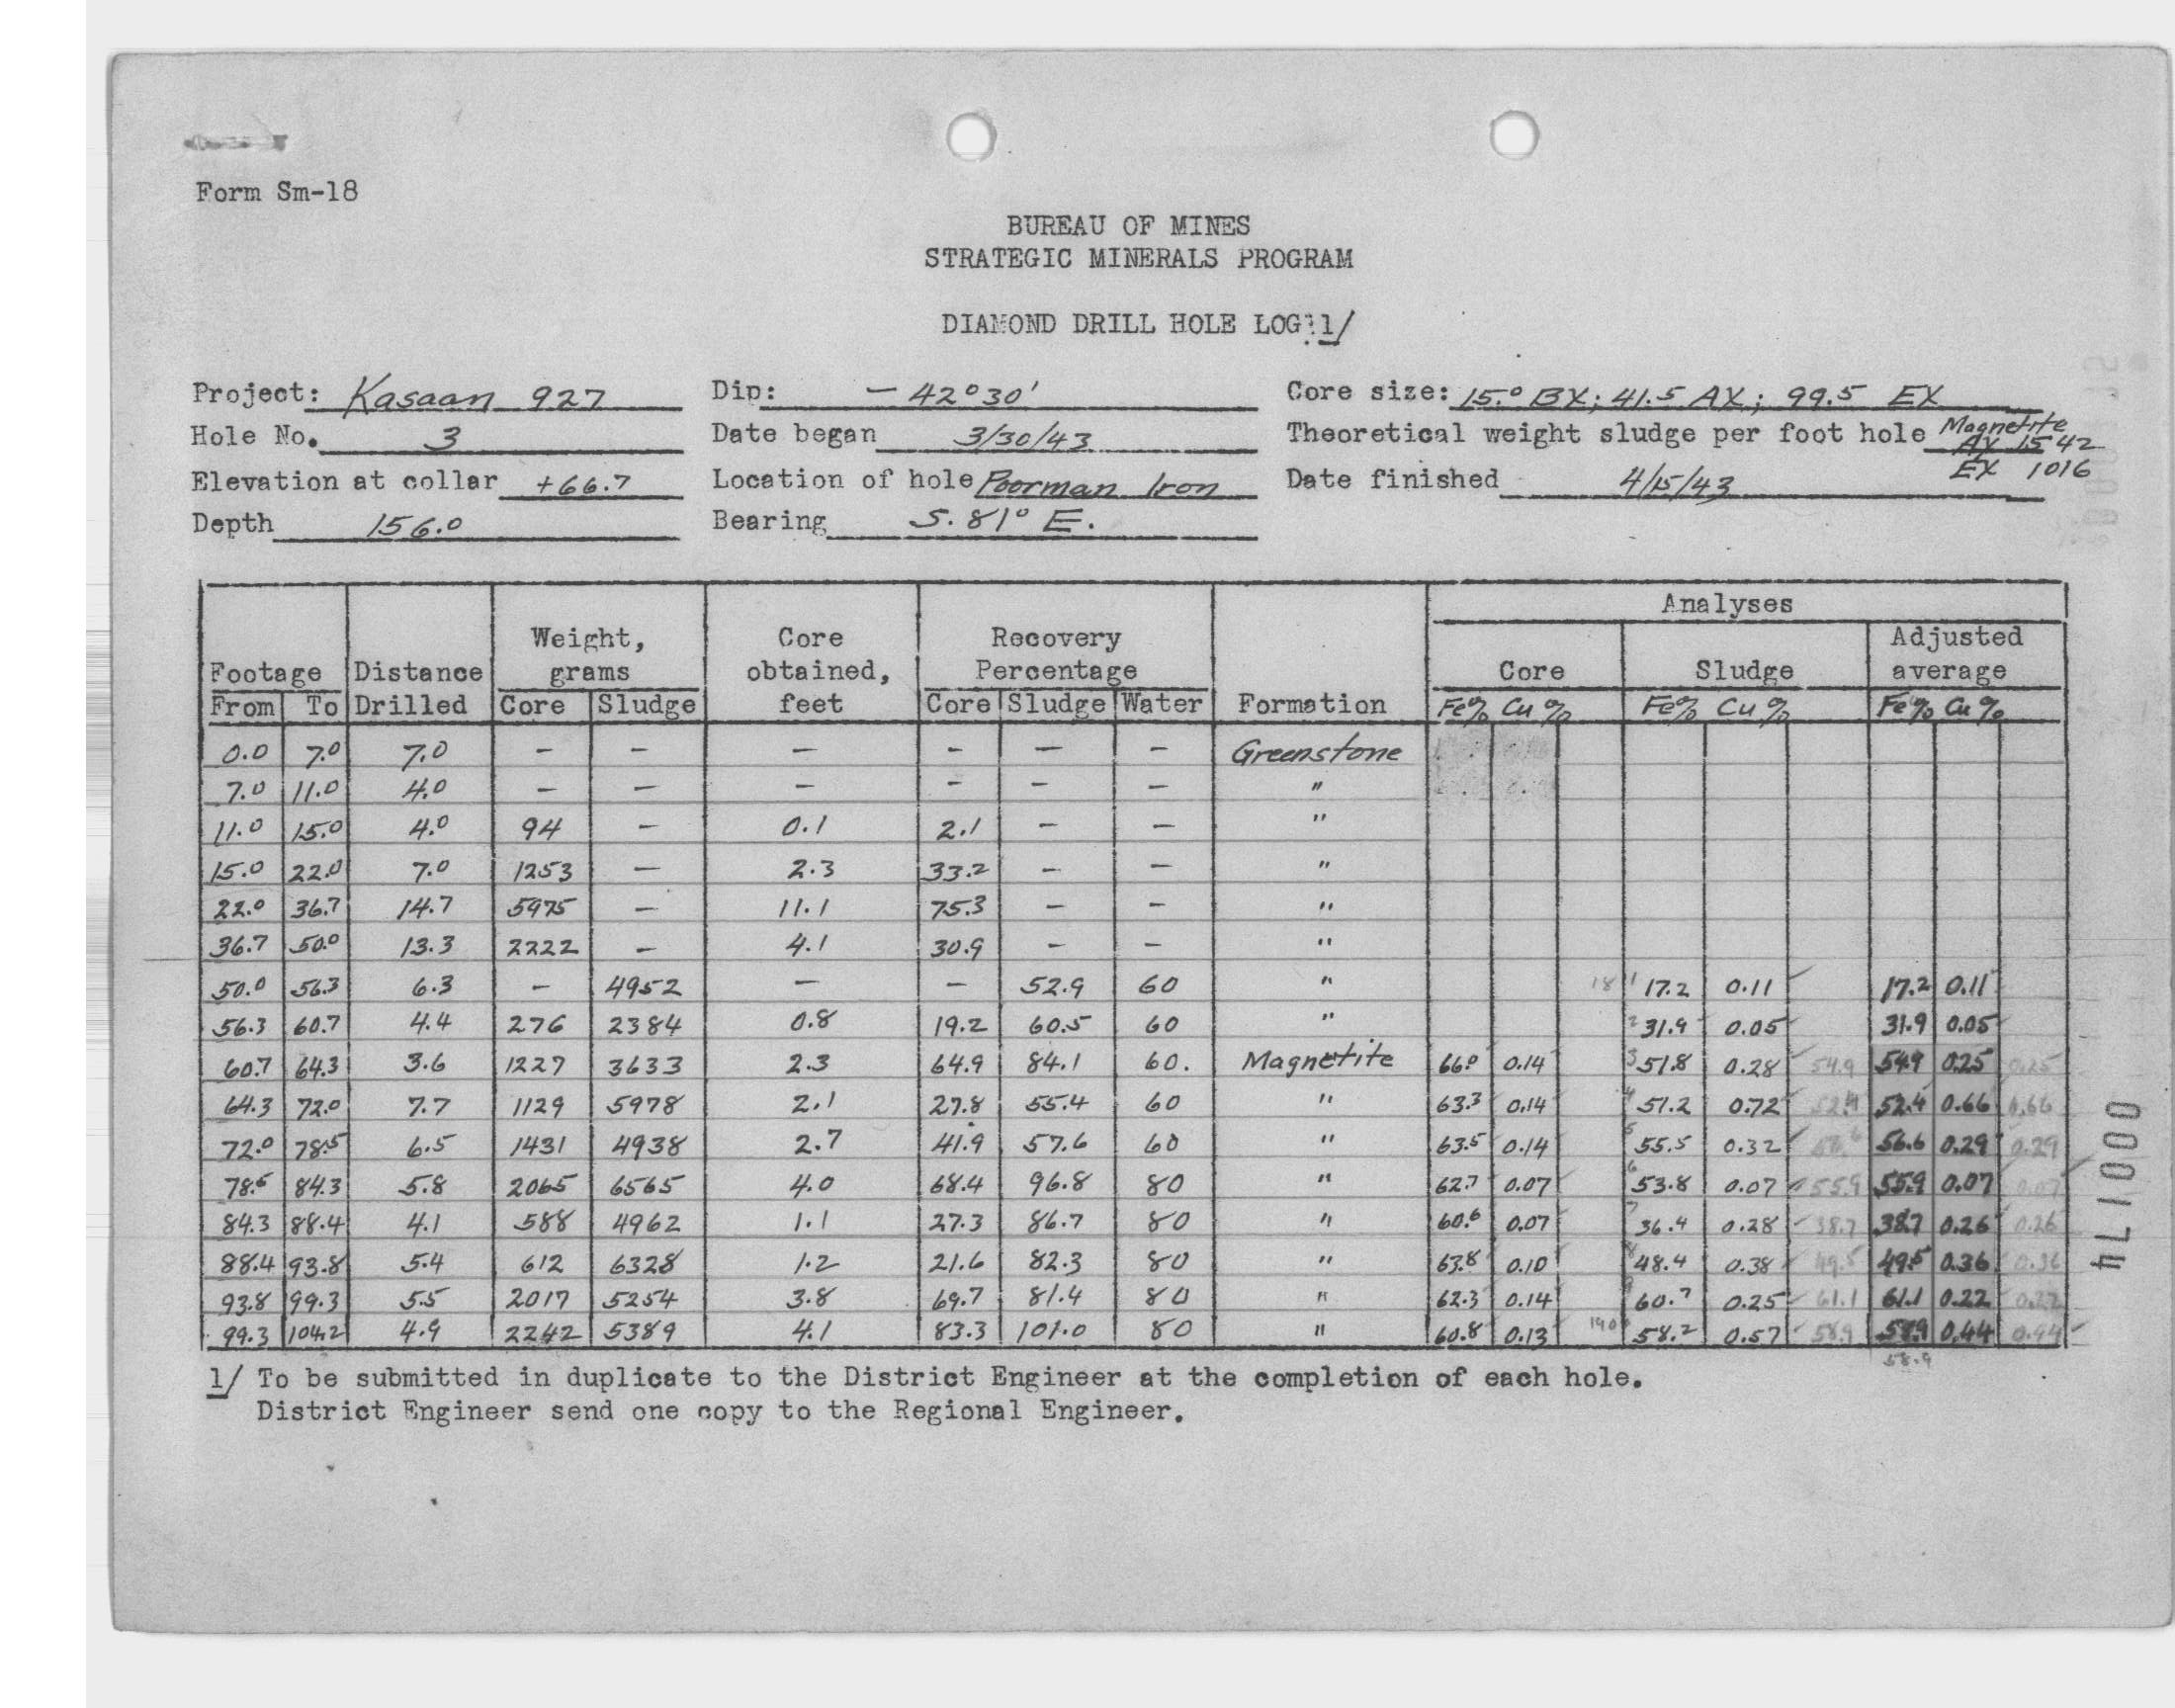 Form Sm-18
BUREAU OF MINES
STRATEGIC MINERALS PROGRAM
DIAMOND DRILL HOLE LOG 1/
Project: Kasaan 927 Dip: - 42°30' Core size: 15.0 BX; 41.5 AX; 99.5 EX
Hole No. 3 Date began 3/30/43 Theoretical weight sludge per foot hole Magnetite AX 1542
Elevation at collar +66.7 Location of hole Poorman Iron Date finished 4/15/43 EX 1016
Depth 156.0 Bearing S. 81° E.
Analyses
Weight, Core Recovery Adjusted
Footage Distance grams obtained, Percentage Core Sludge average
From To Drilled Core Sludge feet Core Sludge Water Formation Fe% Cu% Fe% Cu% Fe% Cu%
0.0 7.0 7.0 - - - - - - Greenstone
7.0 11.0 4.0 - - - - - - "
11.0 15.0 4.0 94 - 0.1 2.1 - - "
15.0 22.0 7.0 1253 - 2.3 33.2 - - "
22.0 36.7 14.7 5975 - 11.1 75.3 - - "
36.7 50.0 13.3 2222 - 4.1 30.9 - - "
50.0 56.3 6.3 - 4952 - - 52.9 60 " 18 1 17.2 0.11 17.2 0.11
56.3 60.7 4.4 276 2384 0.8 19.2 60.5 60 " 2 31.9 0.05 31.9 0.05
60.7 64.3 3.6 1227 3633 2.3 64.9 84.1 60. Magnetite 66.0 0.14 3 51.8 0.28 54.9 54.9 0.25 0.25
64.3 72.0 7.7 1129 5978 2.1 27.8 55.4 60 " 63.3 0.14 4 51.2 0.72 52.4 52.4 0.66 0.66
72.0 78.5 6.5 1431 4938 2.7 41.9 57.6 60 " 63.5 0.14 5 55.5 0.32 56.6 0.29 0.29
78.5 84.3 5.8 2065 6565 4.0 68.4 96.8 80 " 62.7 0.07 6 53.8 0.07 55.9 55.9 0.07 0.07
84.3 88.4 4.1 588 4962 1.1 27.3 86.7 80 " 60.6 0.07 7 36.4 0.28 38.7 38.7 0.26 0.26
88.4 93.8 5.4 612 6328 1.2 21.6 82.3 80 " 63.8 0.10 8 48.4 0.38 49.5 49.5 0.36 0.36
93.8 99.3 5.5 2017 5254 3.8 69.7 81.4 80 " 62.3 0.14 9 60.7 0.25 61.1 61.1 0.22 0.22
99.3 104.2 4.9 2242 5389 4.1 83.3 101.0 80 " 60.8 0.13 58.2 0.57 58.9 58.9 0.44 0.44
58.9
1/ To be submitted in duplicate to the District Engineer at the completion of each hole.
District Engineer send one copy to the Regional Engineer.
000174